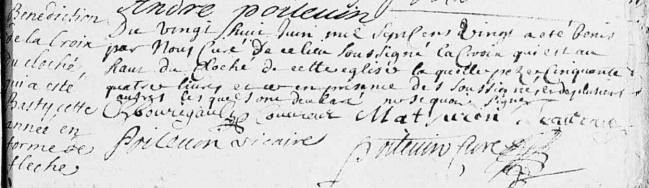 André poitevin
Benediction
de la Croix
du Cloché,
qui a esté
Basty cette
année en
forme de
fleche
Du vingt huit Juin mil sept cens vingt a eté benis
par Nous Curé de ce lieu Soussigné la Croix qui est au
haut du Cloché de cette eglise la quelle peze Cinquante
quatre livres et ce en presence des Soussignés et de plusieurs
autres les quels ont declaré ne sçavoir signer
Couvreur Mathurin
poitevin vicaire
poitevin Curé